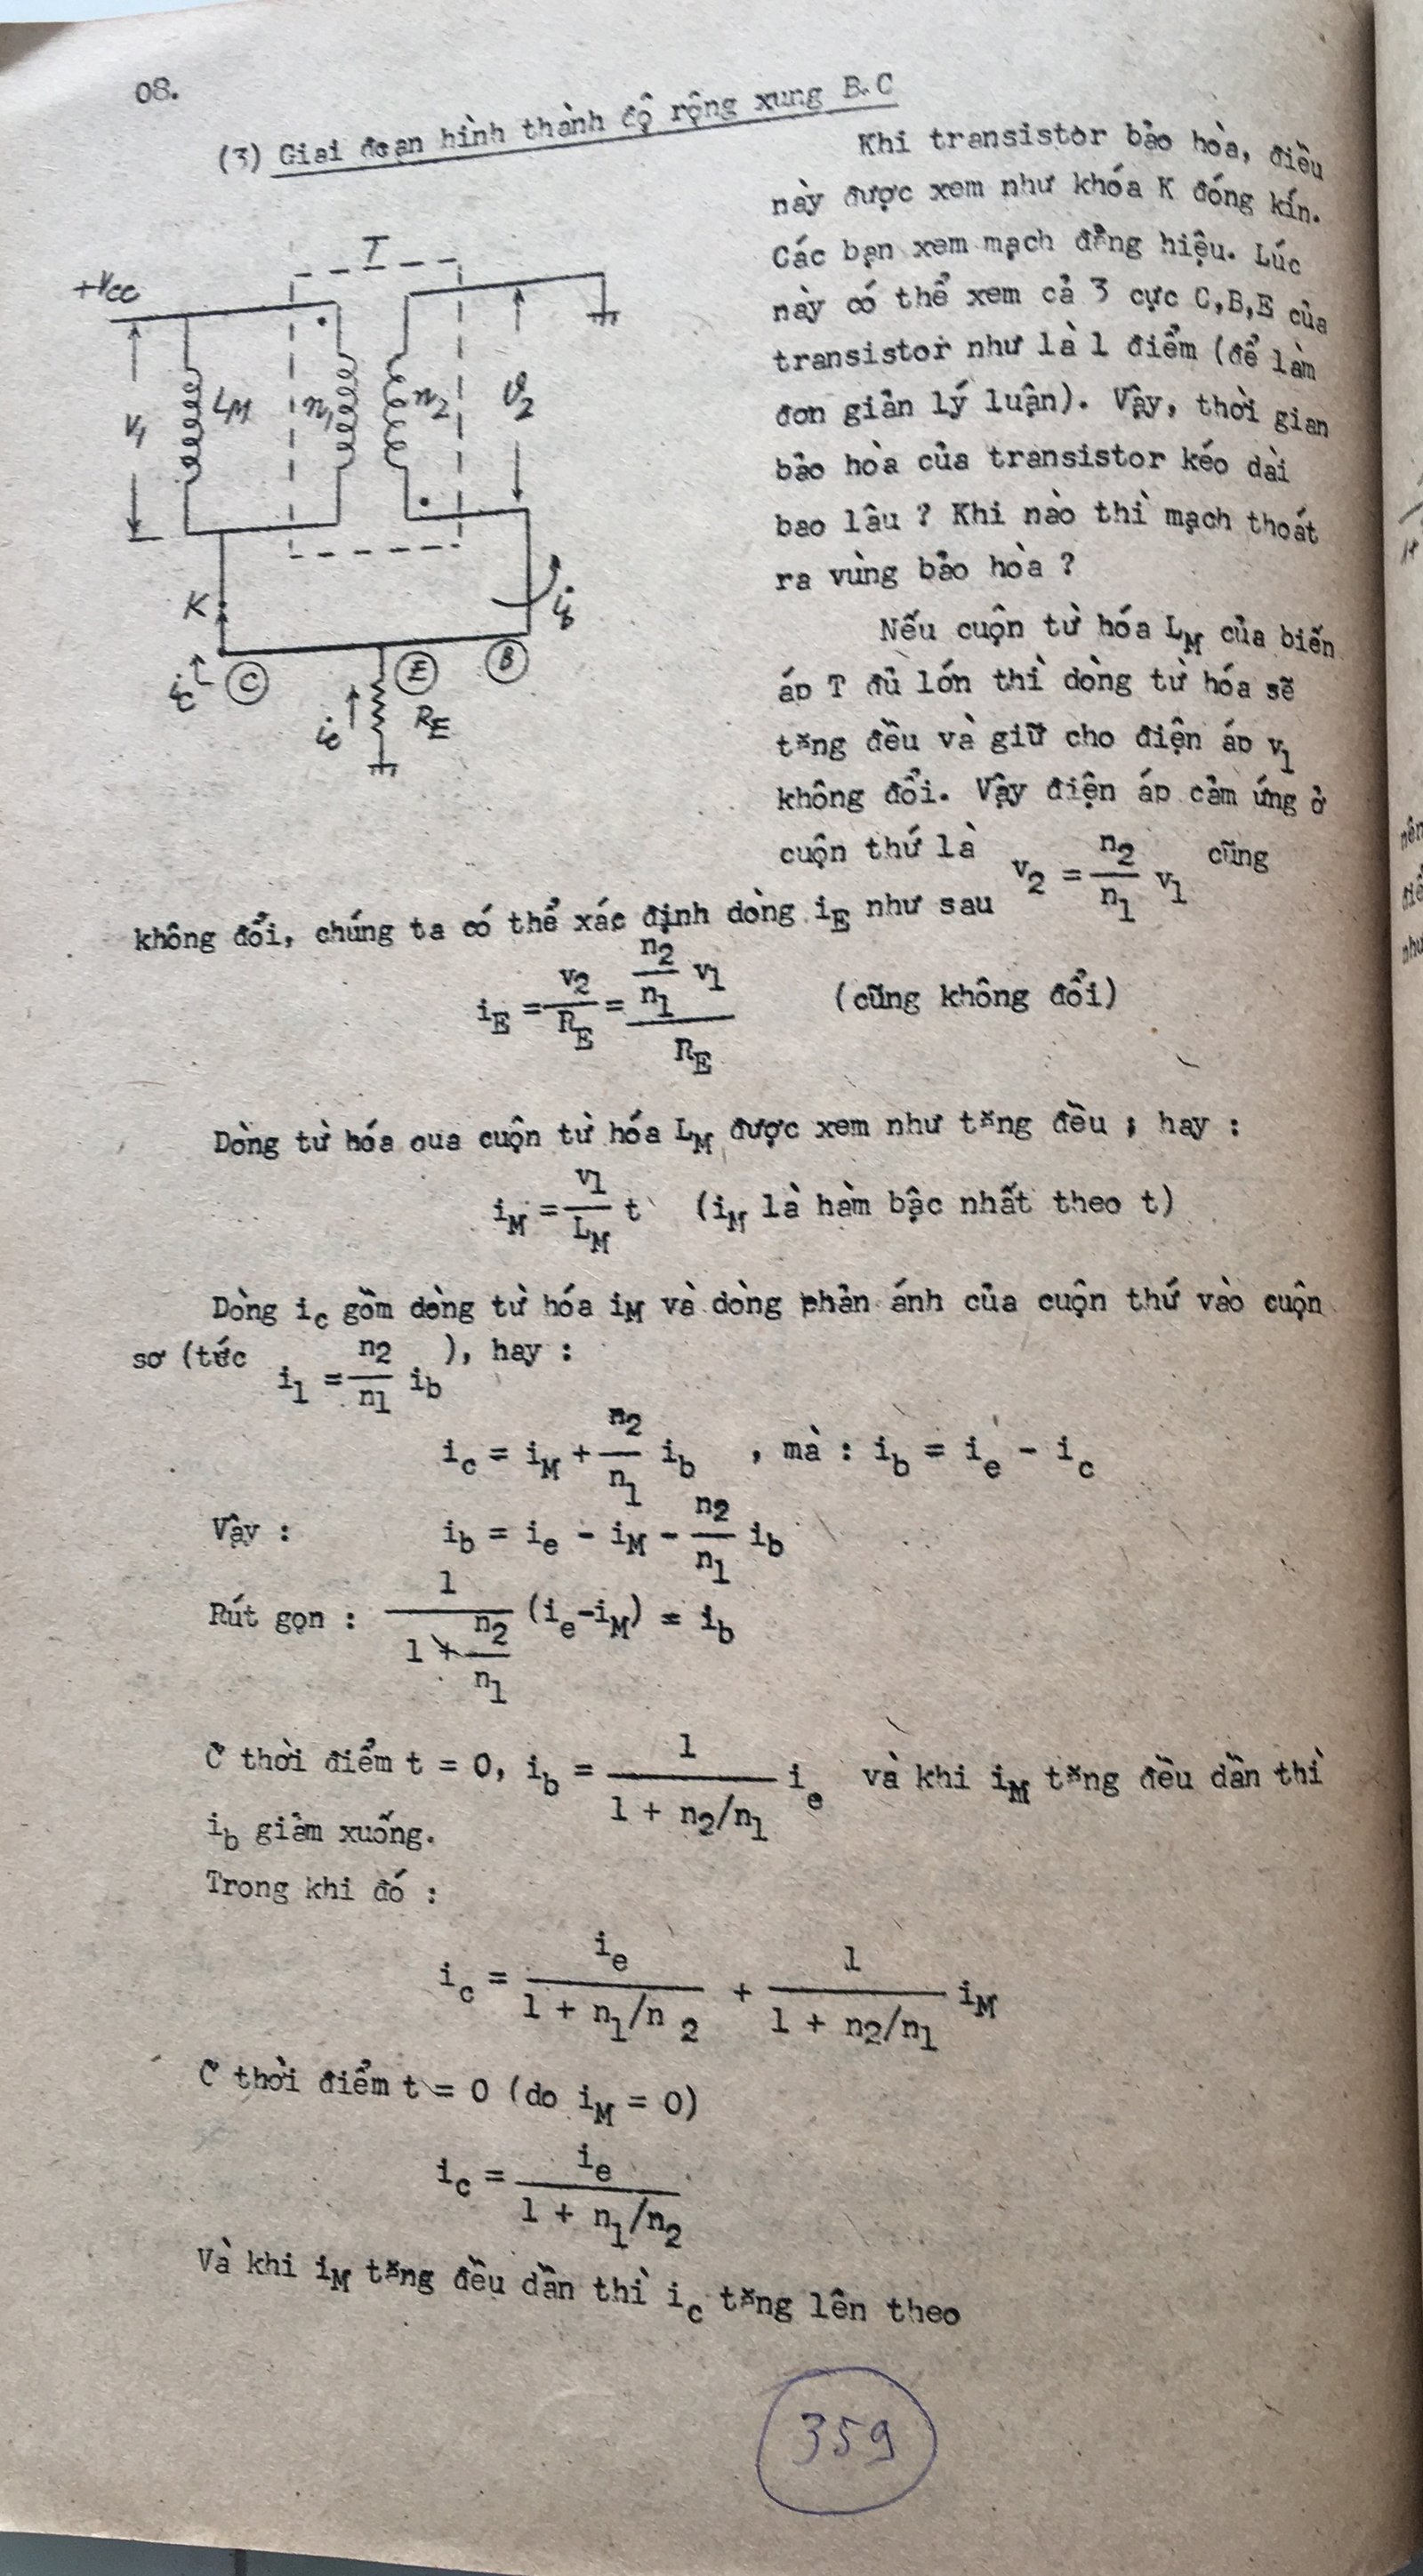 08.
(3) Giai đoạn hình thành độ rộng xung B.C
+Vcc
T
V1
LM
n1
n2
v2
K
ic
C
E
B
ib
ie
RE
Khi transistor bảo hòa, điều
này được xem như khóa K đóng kín.
Các bạn xem mạch đẳng hiệu. Lúc
này có thể xem cả 3 cực C,B,E của
transistor như là 1 điểm (để làm
đơn giản lý luận). Vậy, thời gian
bảo hòa của transistor kéo dài
bao lâu ? Khi nào thì mạch thoát
ra vùng bảo hòa ?
Nếu cuộn từ hóa LM của biến
áp T đủ lớn thì dòng từ hóa sẽ
tăng đều và giữ cho điện áp v1
không đổi. Vậy điện áp cảm ứng ở
cuộn thứ là v2 = n2/n1 v1 cũng
không đổi, chúng ta có thể xác định dòng iE như sau
iE = v2/RE = (n2/n1 v1)/RE (cũng không đổi)
Dòng từ hóa qua cuộn từ hóa LM được xem như tăng đều ; hay :
iM = v1/LM t (iM là hàm bậc nhất theo t)
Dòng ic gồm dòng từ hóa iM và dòng phản ánh của cuộn thứ vào cuộn
sơ (tức i1 = n2/n1 ib ), hay :
ic = iM + n2/n1 ib , mà : ib = ie - ic
Vậy : ib = ie - iM - n2/n1 ib
Rút gọn : 1/(1 + n2/n1) (ie-iM) = ib
Ở thời điểm t = 0, ib = 1/(1 + n2/n1) ie và khi iM tăng đều dần thì
ib giảm xuống.
Trong khi đó :
ic = ie/(1 + n1/n2) + 1/(1 + n2/n1) iM
Ở thời điểm t = 0 (do iM = 0)
ic = ie/(1 + n1/n2)
Và khi iM tăng đều dần thì ic tăng lên theo
359